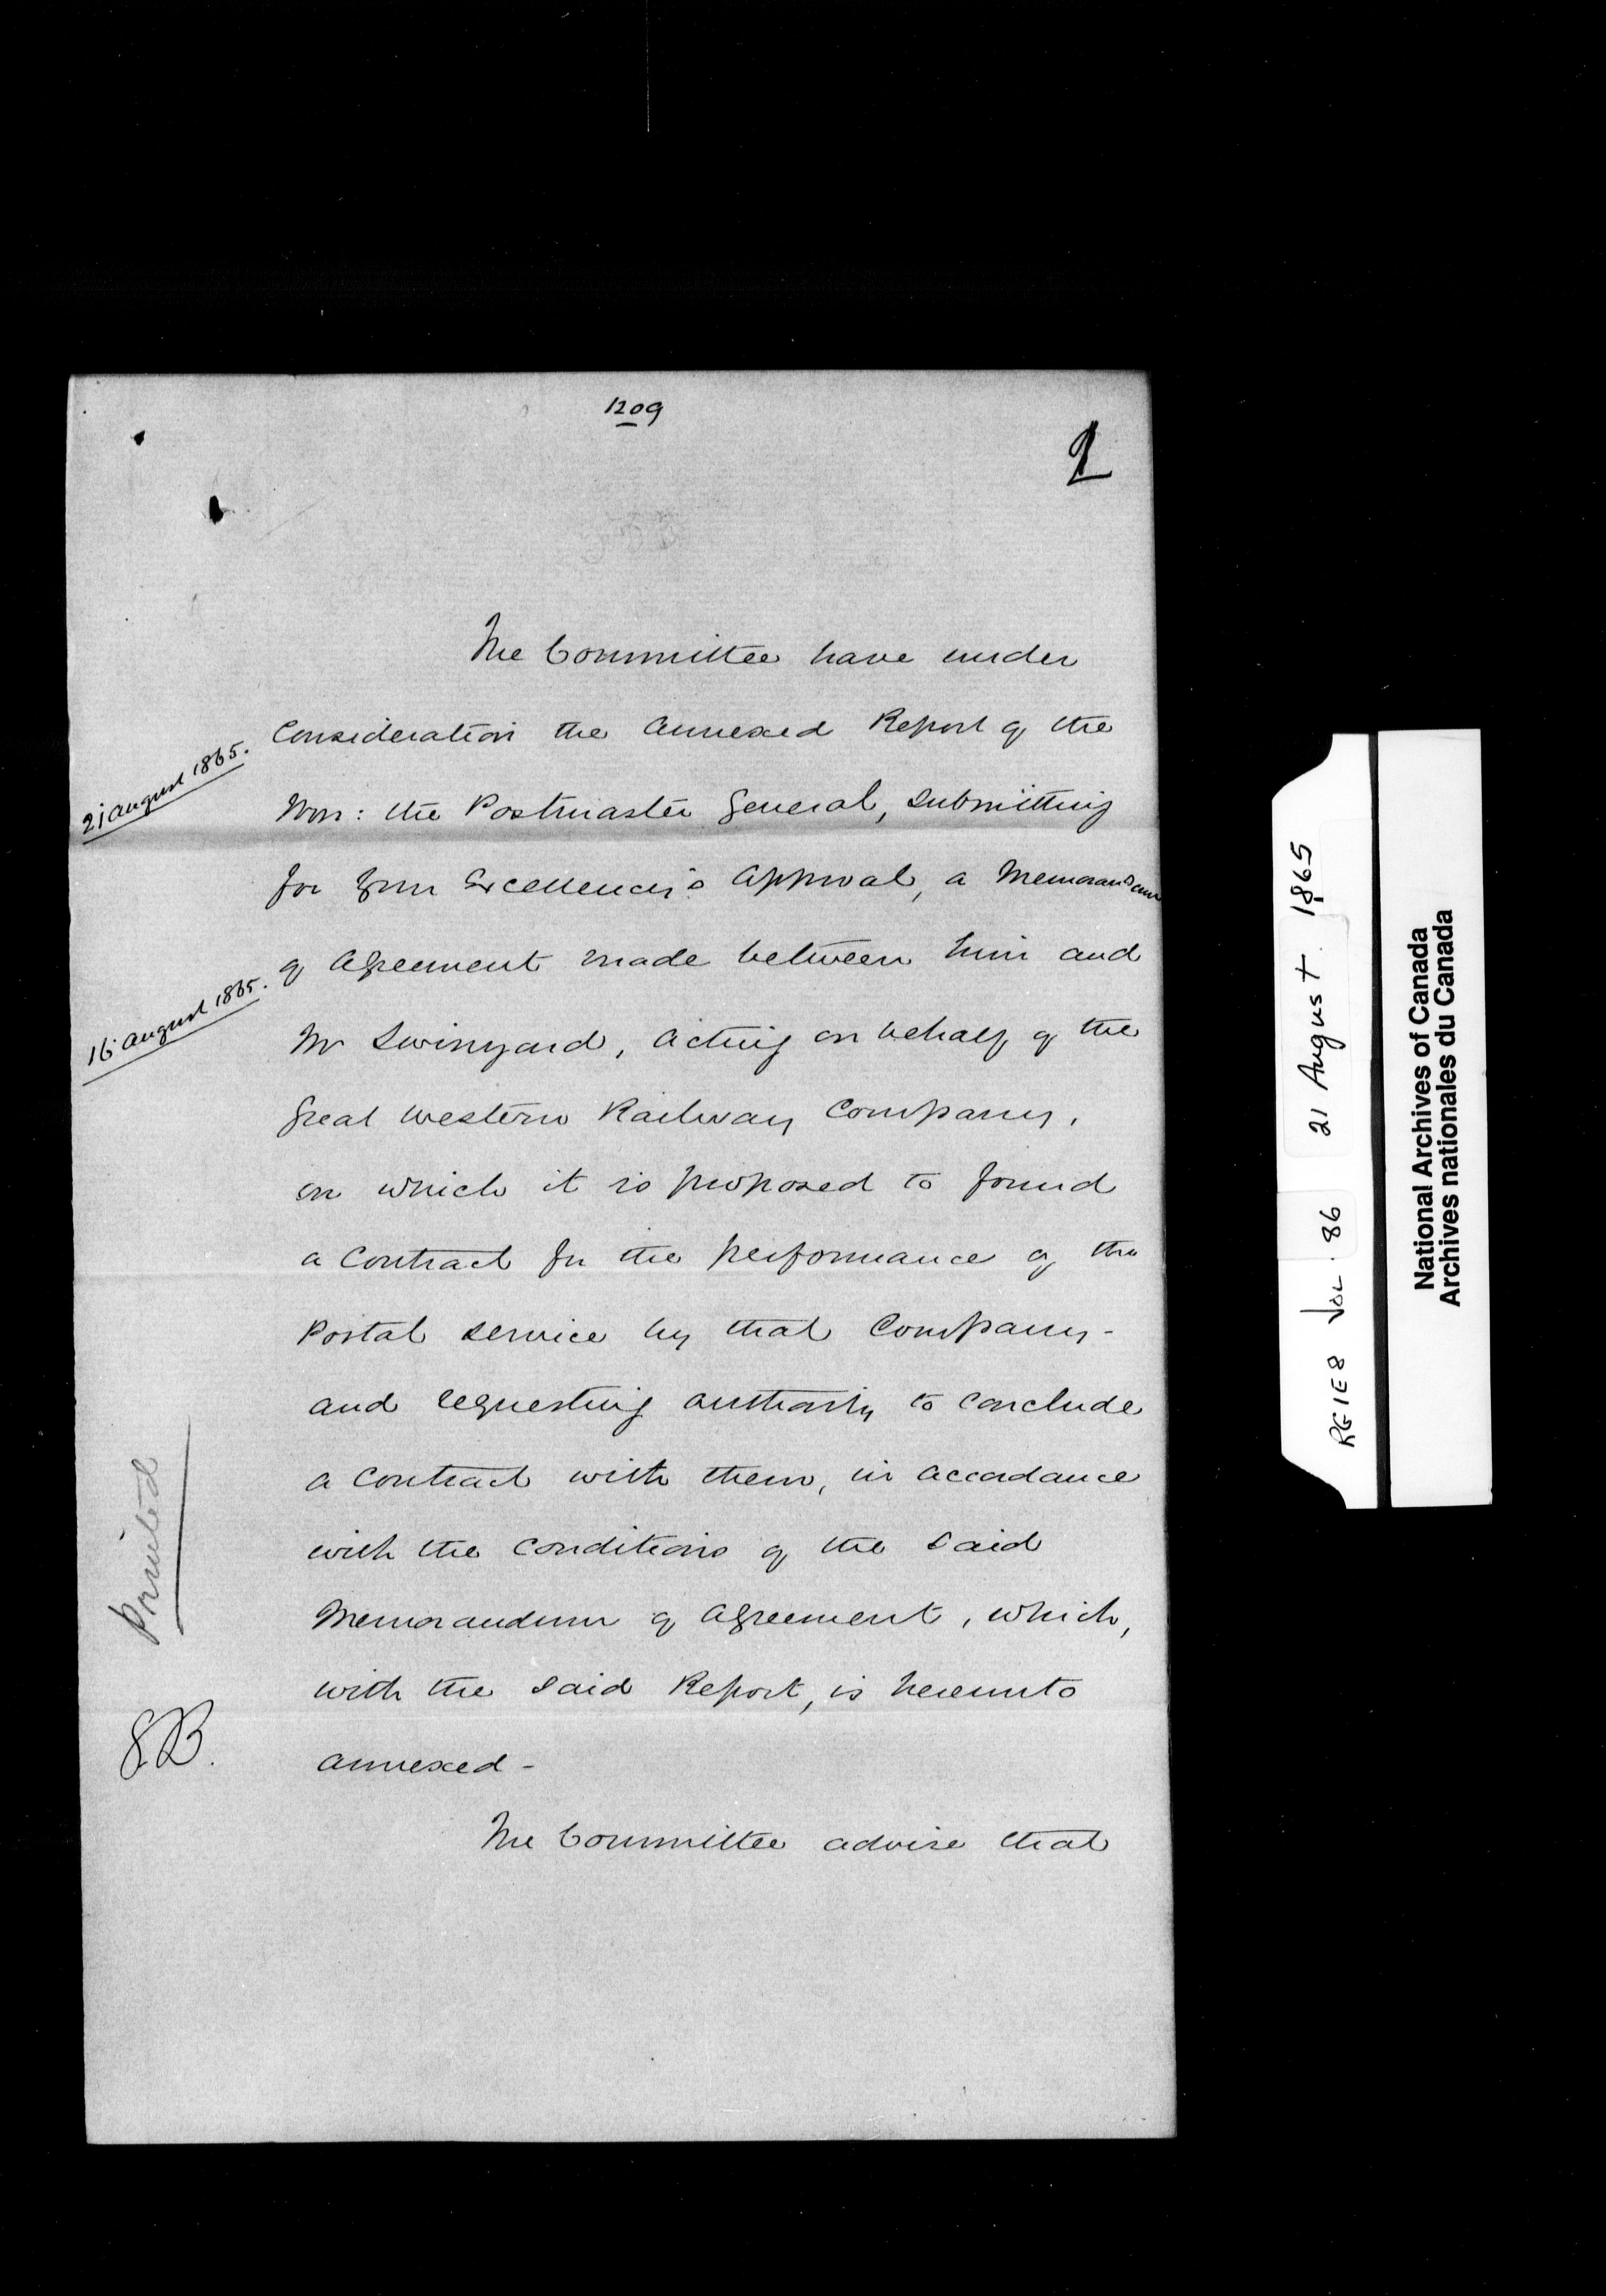 1209
2
The Committee have under
Consideration the annexed Report of the
21 August 1865.
Hon: the Postmaster General, submitting
for Your Excellency's approval, a Memorandum
of Agreement made between him and
16 August 1865.
Mr Swinyard, acting on behalf of the
Great Western Railway Company,
on which it is proposed to found
a Contract for the performance of the
Postal service by that Company -
and requesting authority to conclude
a contract with them, in accordance
with the conditions of the said
Memorandum of Agreement, which,
with the said Report, is hereunto
annexed -
The Committee advise that
Printed
RG1E8 VOL. 86 21 August 1865
National Archives of Canada
Archives nationales du Canada